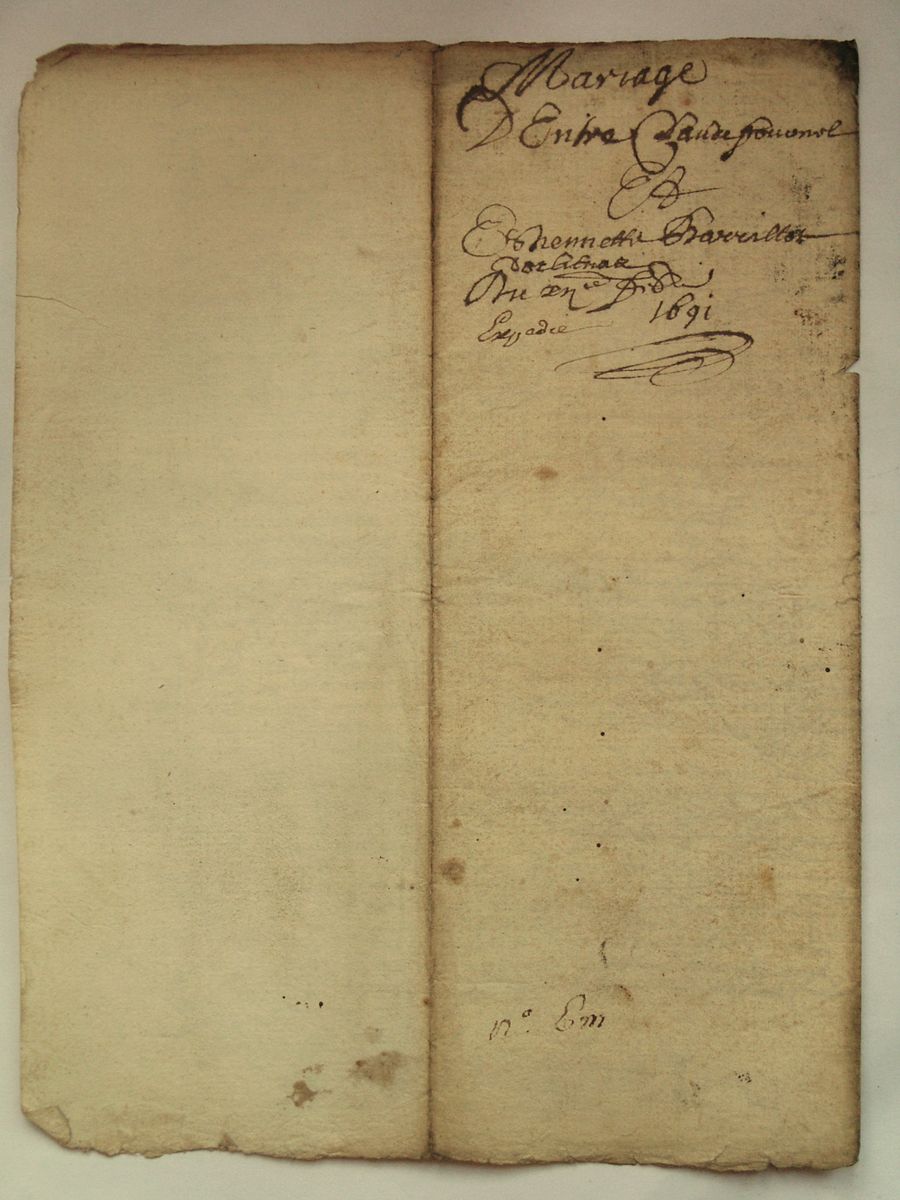 Mariage
D Entre Claude
Et
Estiennette Barrillot
Du xj.ce
1691
Expedie
n.o Em